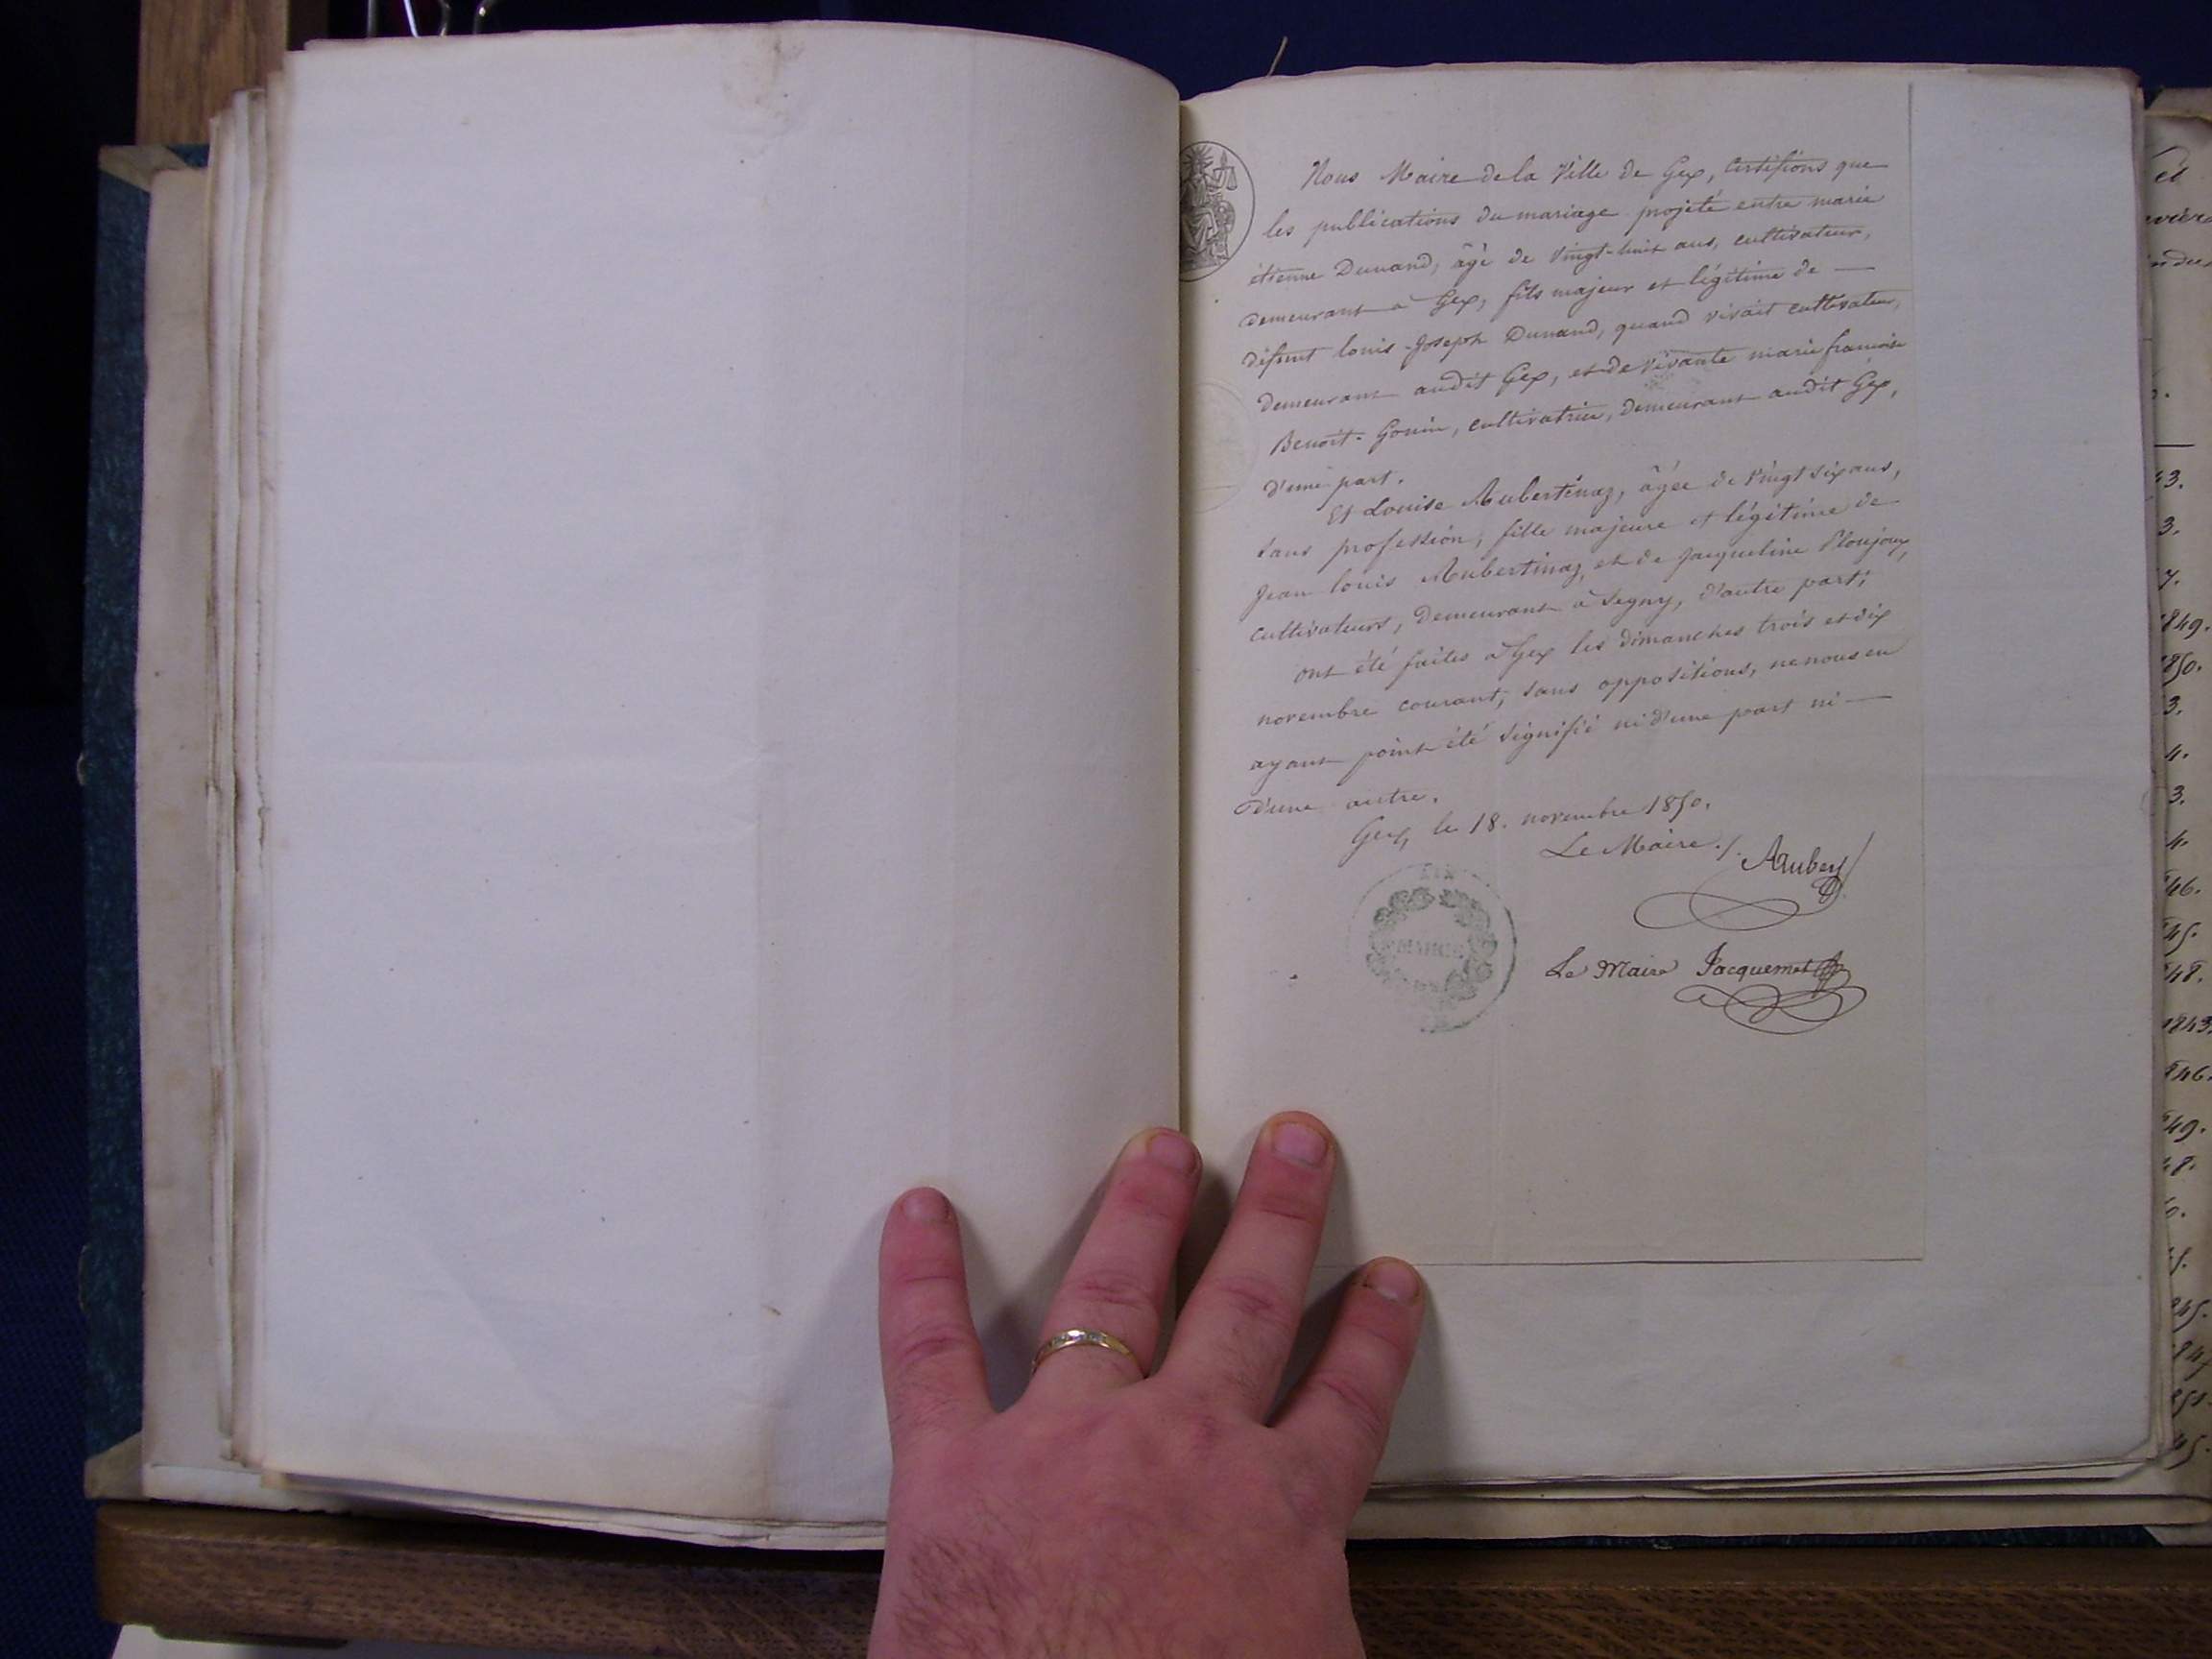 Nous Maire de la Ville de Gex, Certifions que
les publications du mariage projeté entre marie
étienne Dunand, âgé de Vingt-huit ans, cultivateur,
demeurant à Gex, fils majeur et légitime de —
défunt louis-Joseph Dunand, quand vivait cultivateur,
demeurant audit Gex, et de vivante marie françoise
Benoit-Gonin, cultivatrice, demeurant audit Gex,
d'une part.
Et Louise Aubertinaz, âgée de Vingt six ans,
sans profession, fille majeure et légitime de
Jean louis Aubertinaz, et de Jacqueline Ploujoux,
cultivateurs, demeurant à Segny, d'autre part;
ont été faites à Gex les dimanches trois et dix
novembre courant, sans oppositions, ne nous en
ayant point été signifié ni d'une part ni —
d'une autre.
Gex, le 18. novembre 1850.
Le Maire./.
AIN
MAIRIE
Le Maire Jacquemet
1849.
1850.
1843